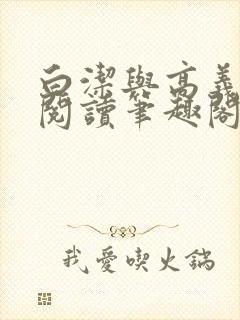 白潔與高義
閱讀筆趣閣
我愛喫火鍋